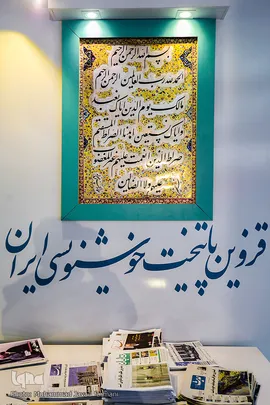 بسم الله الرحمن الرحیم
الحمد لله رب العالمین الرحمن الرحیم
مالک یوم الدین ایاک نعبد
و ایاک نستعین اهدنا الصراط المستقیم
صراط الذین انعمت علیهم غیر المغضوب
علیهم و لا الضالین
قزوین پایتخت خوشنویسی ایران
iqna